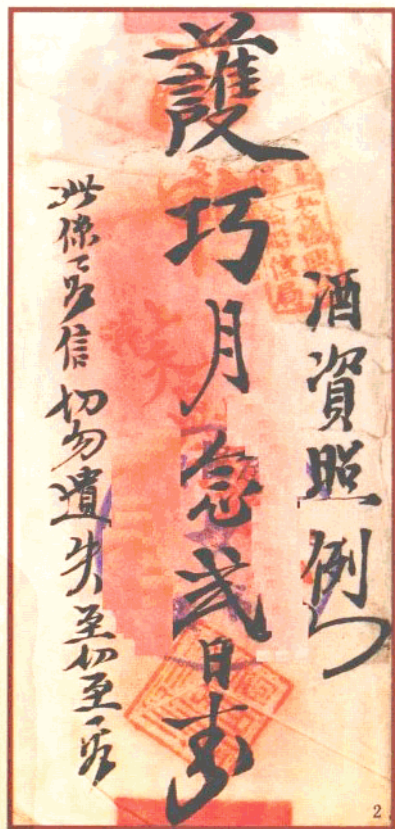 酒資照例
護巧月念弍日封
此係要信切勿遺失至切至要
2